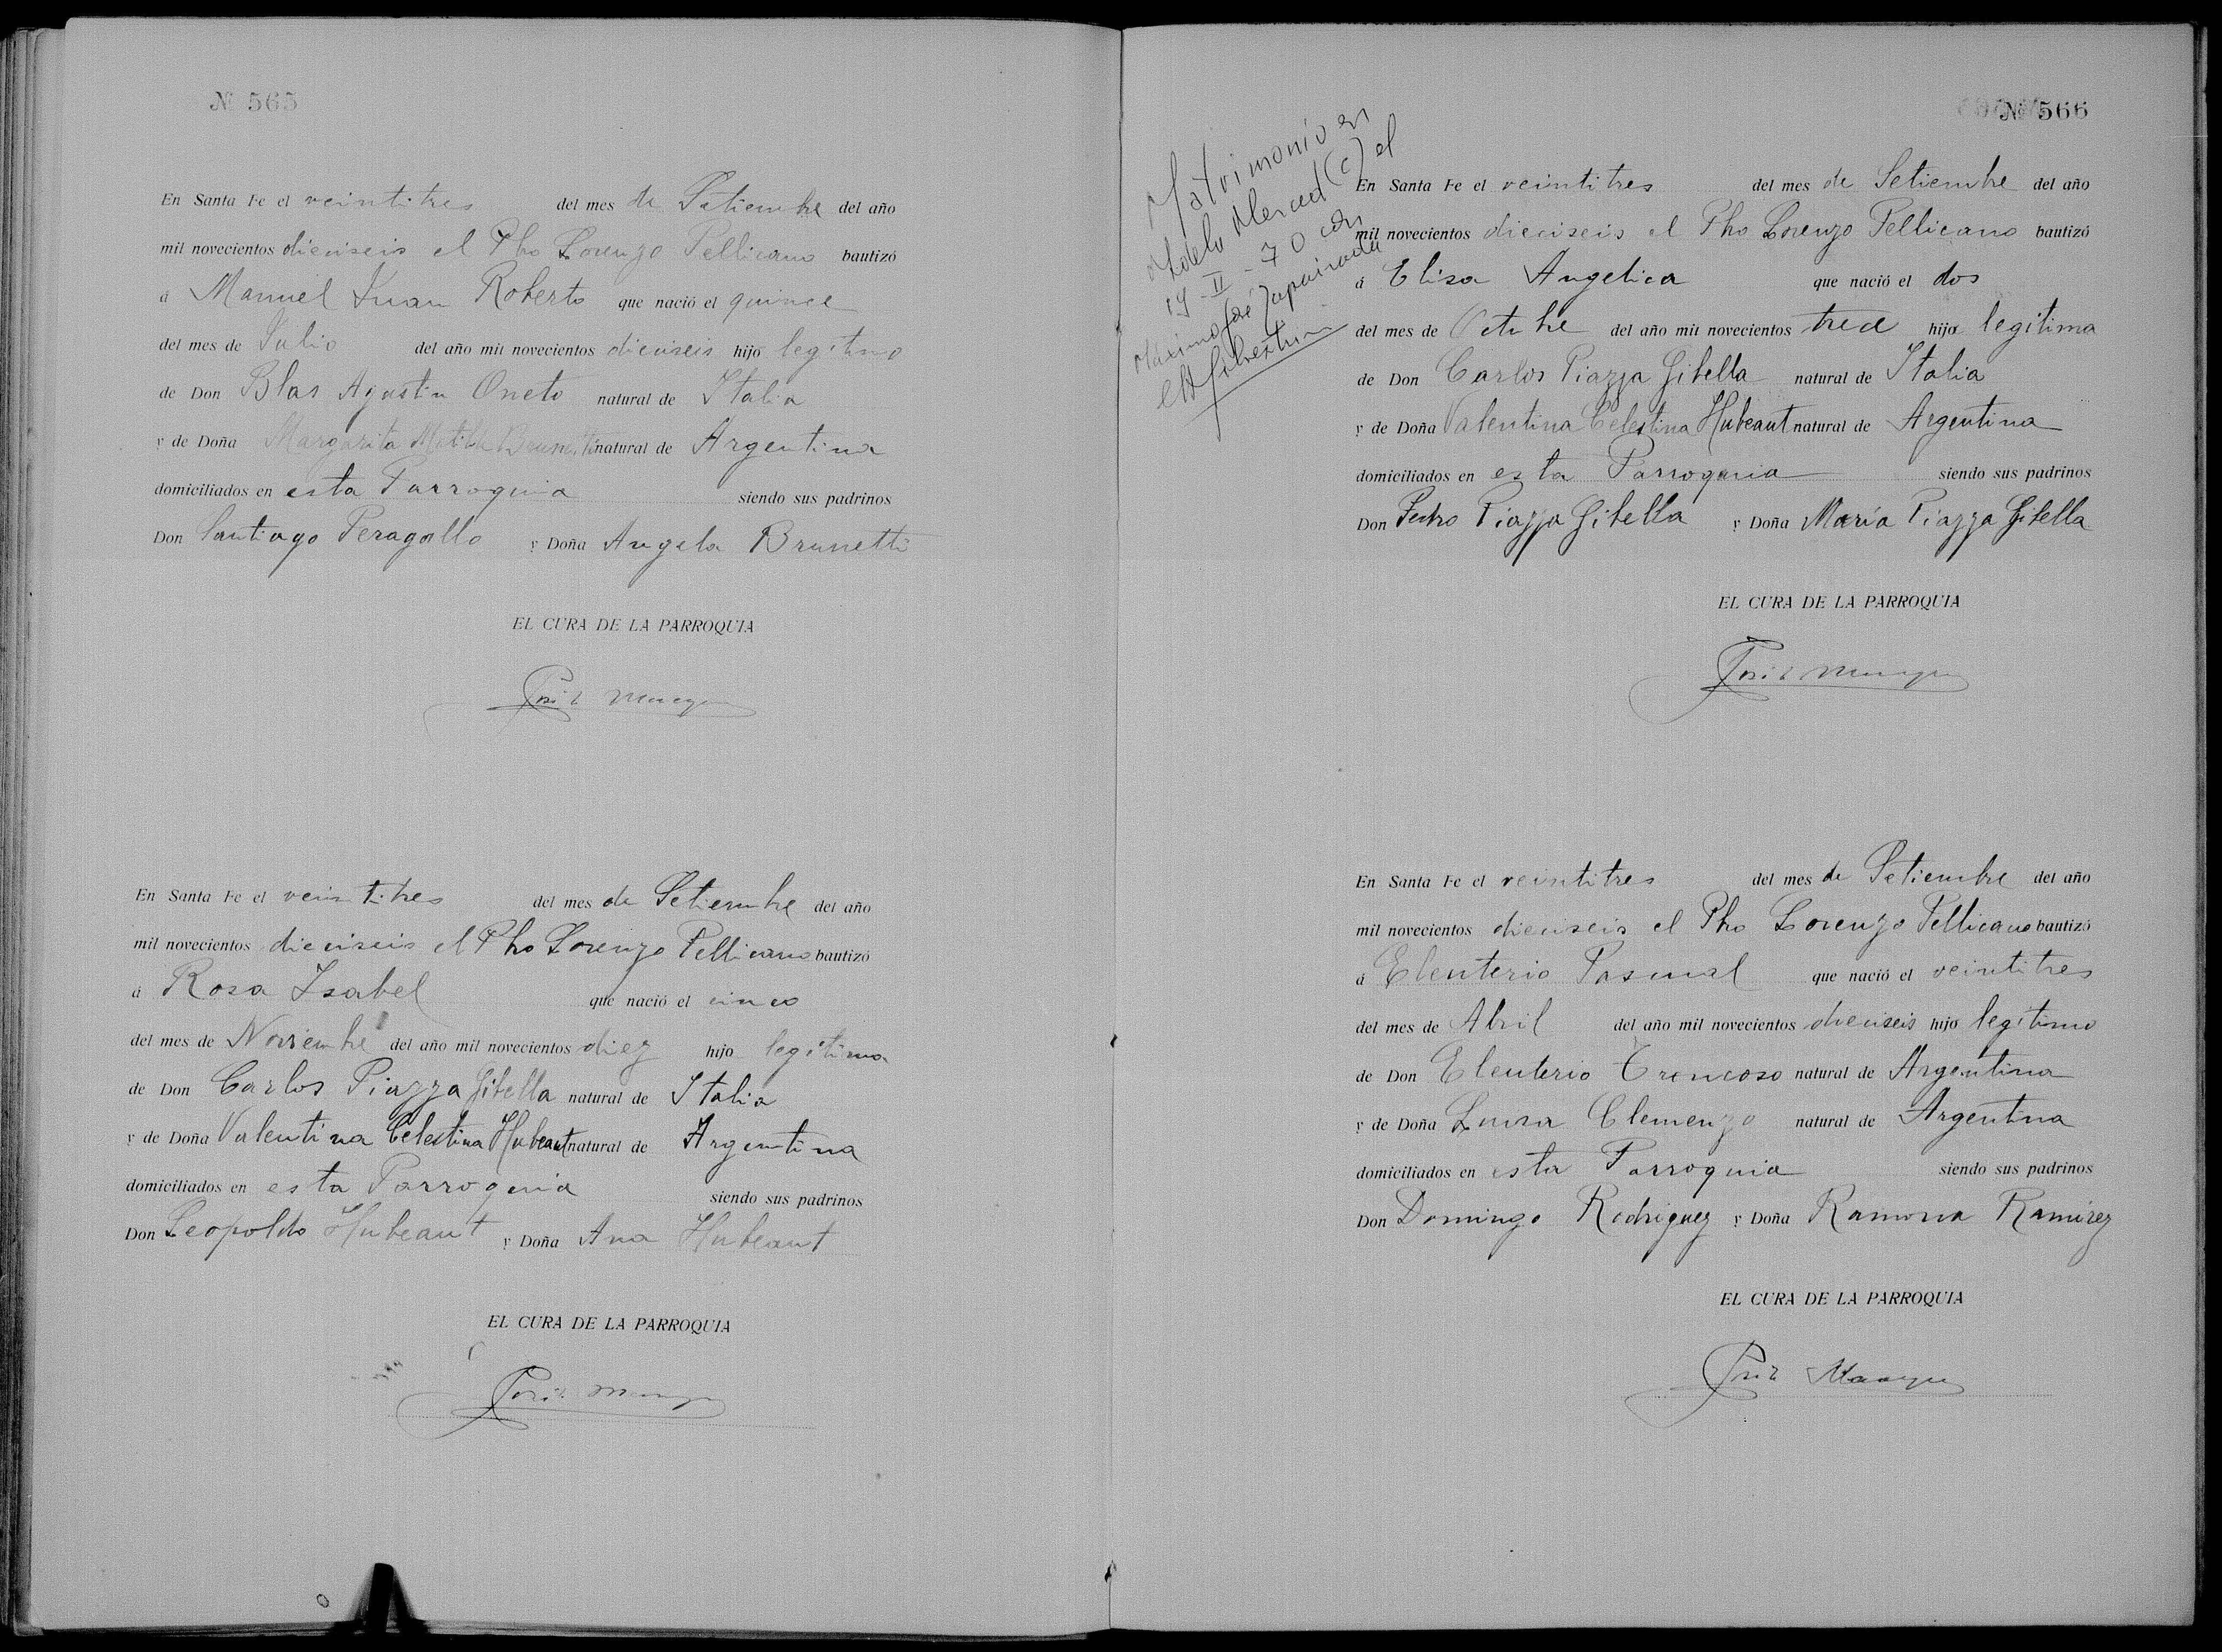 № 565
En Santa Fe el veintitres del mes de Setiembre del año
mil novecientos dieciseis el Pbo Lorenzo Pellicano bautizó
á Manuel Juan Roberto que nació el quince
del mes de Julio del año mil novecientos dieciseis hijo legitimo
de Don Blas Agustin Oneto natural de Italia
y de Doña Margarita Matilde Brunetti natural de Argentina
domiciliados en esta Parroquia siendo sus padrinos
Don Santiago Peragallo y Doña Angela Brunetti
EL CURA DE LA PARROQUIA
En Santa Fe el veintitres del mes de Setiembre del año
mil novecientos dieciseis el Pbo Lorenzo Pellicano bautizó
á Rosa Isabel que nació el cinco
del mes de Noviembre del año mil novecientos diez hijo legitima
de Don Carlos Piazza Gibella natural de Italia
y de Doña Valentina Celestina Hubeaut natural de Argentina
domiciliados en esta Parroquia siendo sus padrinos
Don Leopoldo Hubeaut y Doña Ana Hubeaut
EL CURA DE LA PARROQUIA
№ 566
Matrimonio en
Merced (c) el
14-II-70 con
Máximo José
En Santa Fe el veintitres del mes de Setiembre del año
mil novecientos dieciseis el Pbo Lorenzo Pellicano bautizó
á Elisa Angelica que nació el dos
del mes de Octubre del año mil novecientos trece hija legítima
de Don Carlos Piazza Gibella natural de Italia
y de Doña Valentina Celestina Hubeaut natural de Argentina
domiciliados en esta Parroquia siendo sus padrinos
Don Pedro Piazza Gibella y Doña María Piazza Gibella
EL CURA DE LA PARROQUIA
En Santa Fe el veintitres del mes de Setiembre del año
mil novecientos dieciseis el Pbo Lorenzo Pellicano bautizó
á Eleuterio Pascual que nació el veintitres
del mes de Abril del año mil novecientos dieciseis hijo legítimo
de Don Eleuterio Troncoso natural de Argentina
y de Doña Luisa Clemenzo natural de Argentina
domiciliados en esta Parroquia siendo sus padrinos
Don Domingo Rodriguez y Doña Ramona Ramirez
EL CURA DE LA PARROQUIA